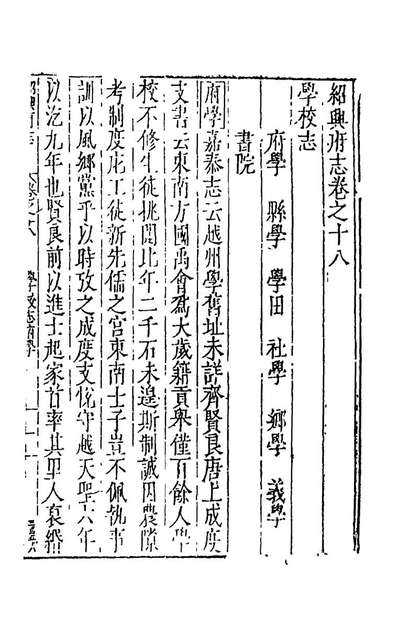 紹興府志卷之十八
學校志
府學 縣學 學田 社學 鄉學 義學
書院
府學嘉泰志云越州學舊址未詳齊賢良唐上成度
支書云東南方國禹會爲大歲籍貢舉僅百餘人學
校不修生徒挑闥比年二千石未遑斯制誠因農隙
考制度庀工徒新先儒之宫東南士子豈不佩執事
訓以風鄉黨乎以時攷之成度支悅守越天聖六年
以迄九年也賢良前以進士起家首率其里人裒緡
紹興府志 卷之十八 學校志府學 一